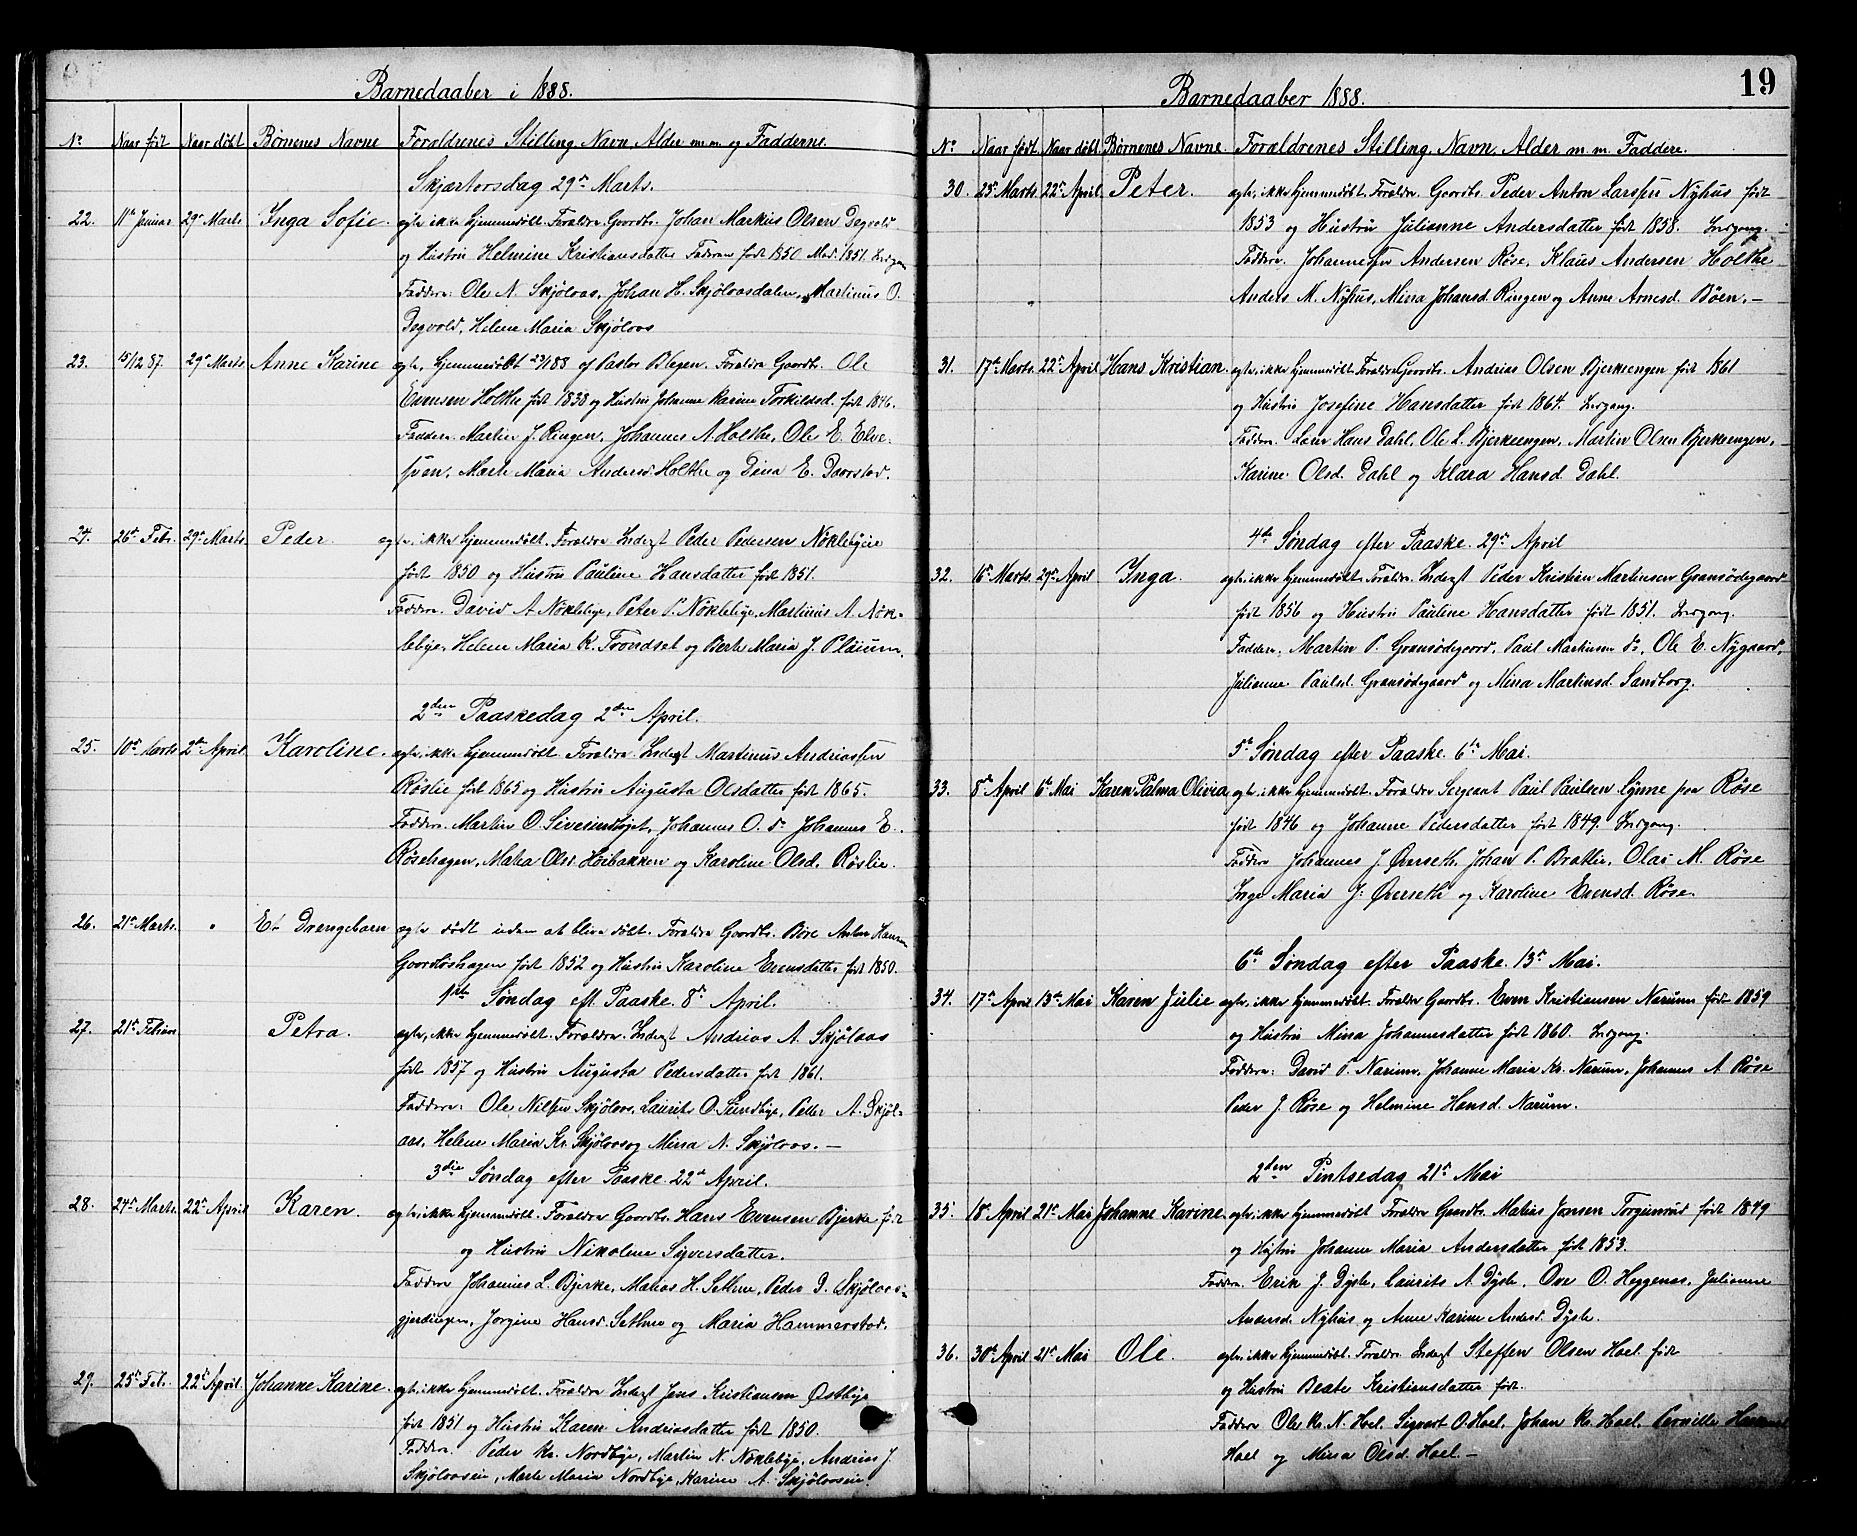 Barnedaaber i 1888.
No Naar født Naar døbt Børnenes Navne Forældrenes Stilling Navn Alder m.m. og Fadderne.
Skjærtorsdag 29de Marts.
22. 11te Januar 29de Marts Inga Sofie. egte ikke hjemmedøbt. Forældre Gaardbr. Johan Markus Olsen Degvold
og Hustru Helmine Kristiansdatter Faderen født 1850 Mod. 1851. Indgang
Faddere: Ole N. Skjølaas, Johan H. Skjølaasdalen, Martinus O.
Degvold, Helene Maria Skjølaas
23. 15/12 87. 29de Marts Anne Karine egte, hjemmedøbt 23/1 88 af Pastor Blagen. Forældre Gaardbr. Ole
Evensen Holthe født 1838 og Hustru Johanne Karine Torkildsd. født 1846.
Faddere. Martin J. Ringen, Johannes A. Holthe, Ole E. Elve-
Marte Maria Andersd. Holthe og Dina E. Daarstad.
24. 26de Febr. 29de Marts Peder. egte, ikke hjemmedøbt. Forældre Inderst Peder Pedersen Nøklebyeie
født 1850 og Hustru Pauline Hansdatter født 1851.
Faddere. David A. Nøklebye, Peter P. Nøklebye, Martinus A. Nøk-
lebye, Helene Maria K. Trondset og Berte Maria J. Plaium.
2den Paaskedag 2den April.
25. 10de Marts 2de April Karoline. egte, ikke hjemmedøbt. Forældre Inderst Martinus Andriassen
Røslie født 1865 og Hustru Augusta Olsdatter født 1865.
Faddere. Martin O. Johannes O. do Johannes E.
Røsehagen, Mathea Olsd. Høibakken og Karoline Olsd. Røslie.
26. 21de Marts. " Et Drengebarn egte dødt uden at blive døbt. Forældre Gaardbr. Bore Anton Hansen
født 1852 og Hustru Karoline Evensdatter født 1850.
1ste Søndag eft. Paaske. 8de April.
27. 21de Februar Petra. egte, ikke hjemmedøbt. Forældre. Inderst Andrias A. Skjølaas
født 1857 og Hustru Augusta Pedersdatter født 1861.
Faddere: Ole Nilsen Skjølaas, Laurits O. Sundbye, Peder A. Skjøl-
aas, Helene Maria Kr. Skjølaas og Mina N. Skjølaas. —
3die Søndag efter Paaske 22de April.
28. 24de Marts. 22de April Karen. egte, ikke hjemmedøbt. Forældre Gaardbr. Hans Evensen Bjerke født
og Hustru Nikoline Syversdatter.
Faddere Johannes L. Bjerke, Matias H. Sethne, Peder D. Skjølaas-
gjerdingen, Jørgine Hansd. Sethne og Maria Hammerstad.
29. 25de Feb. 22de April. Johanne Karine. egte, ikke hjemmedøbt. Forældre Inderst Jens Kristiansen Østbye
født 1851 og Hustru Karen Andriasdatter født 1850.
Faddere. Peder Kr. Nordbye, Martin N. Nøklebye, Andrias J.
Skjølaaseie, Marte Maria Nordbye, Karine A. Skjølaaseie.
Barnedaaber 1888.
19
No Naar født Naar døbt Børnenes Navne. Forældrenes Stilling Navn, Alder m.m. Faddere.
30. 25de Marts. 22de April Peter. egte, ikke hjemmedøbt. Forældre. Gaardbr. Peder Anton Larssen Nyhus født
1853 og Hustru Julianne Andersdatter født 1858. Indgang.
Faddere. Johannes Andersen Røse, Klaus Andersen Holthe
Anders M. Nyhus, Mina Johansd. Ringen og Anne Arnesd. Bøen. —
31. 17de Marts. 22de April Hans Kristian. egte, ikke hjemmedøbt. Forældre Gaardbr. Andrias Olsen Bjerkeengen født 1861
og Hustru Josefine Hansdatter født 1864. Indgang.
Faddere. Hans Dahl, Ole L. Bjerkeengen, Martin Olsen Bjerkeengen,
Karine Olsd. Dahl og Klara Hansd. Dahl.
4de Søndag efter Paaske. 29de April
32. 16de Marts. 29de April Inga. egte, ikke hjemmedøbt. Forældre. Inderst Peder Kristian Martinsen Gransødegaard
født 1856 og Hustru Pauline Hansdatter født 1851. Indgang.
Faddere. Martin P. Gransødegaard, Paul Markusen do, Ole E. Nygaard,
Julianne Paulsd. Gransødegaard og Mina Martinsd. Sandborg.
5te Søndag efter Paaske. 6te Mai.
33. 8de April 6te Mai Karen Palma Olivia egte, ikke hjemmedøbt. Forældre Sergeant Paul Paulsen Lynne paa Røse
født 1846 og Johanne Pedersdatter født 1849. Indgang.
Faddere Johannes J. Øverseth, Johan P. Bratlie, Olai M. Røse
Inge Maria J. Øverseth og Karoline Evensd. Røse.
6te Søndag efter Paaske. 13de Mai.
34. 17de April 13de Mai Karen Julie egte, ikke hjemmedøbt. Forældre Gaardbr. Even Kristiansen Narum født 1859
og Hustru Mina Johannesdatter født 1860. Indgang.
Faddere: David P. Narum, Johanne Maria Kr. Narum, Johannes A. Røse
Peder J. Røse og Helmine Hansd. Narum.
2den Pintsedag 21de Mai
35. 18de April 21de Mai Johanne Karine. egte, ikke hjemmedøbt Forældre Gaardbr. Matias Jonsen Torgunrud født 1849
og Hustru Johanne Maria Andersdatter født 1853.
Faddere. Erik J. Dyste, Laurits A. Dyste, Ove O. Heggenes, Julianne
Andersd. Nyhus og Anne Karine Andersd. Dyste.
36. 30de April 21de Mai Ole. egte, ikke hjemmedøbt. Forældre Inderst Steffen Olsen Hoel født
og Hustru Beate Kristiansdatter født.
Faddere Ole Kr. N. Hoel, Sigvart O. Hoel, Johan Kr. Hoel, Pernille
Hoel og Mina Olsd. Hoel. —